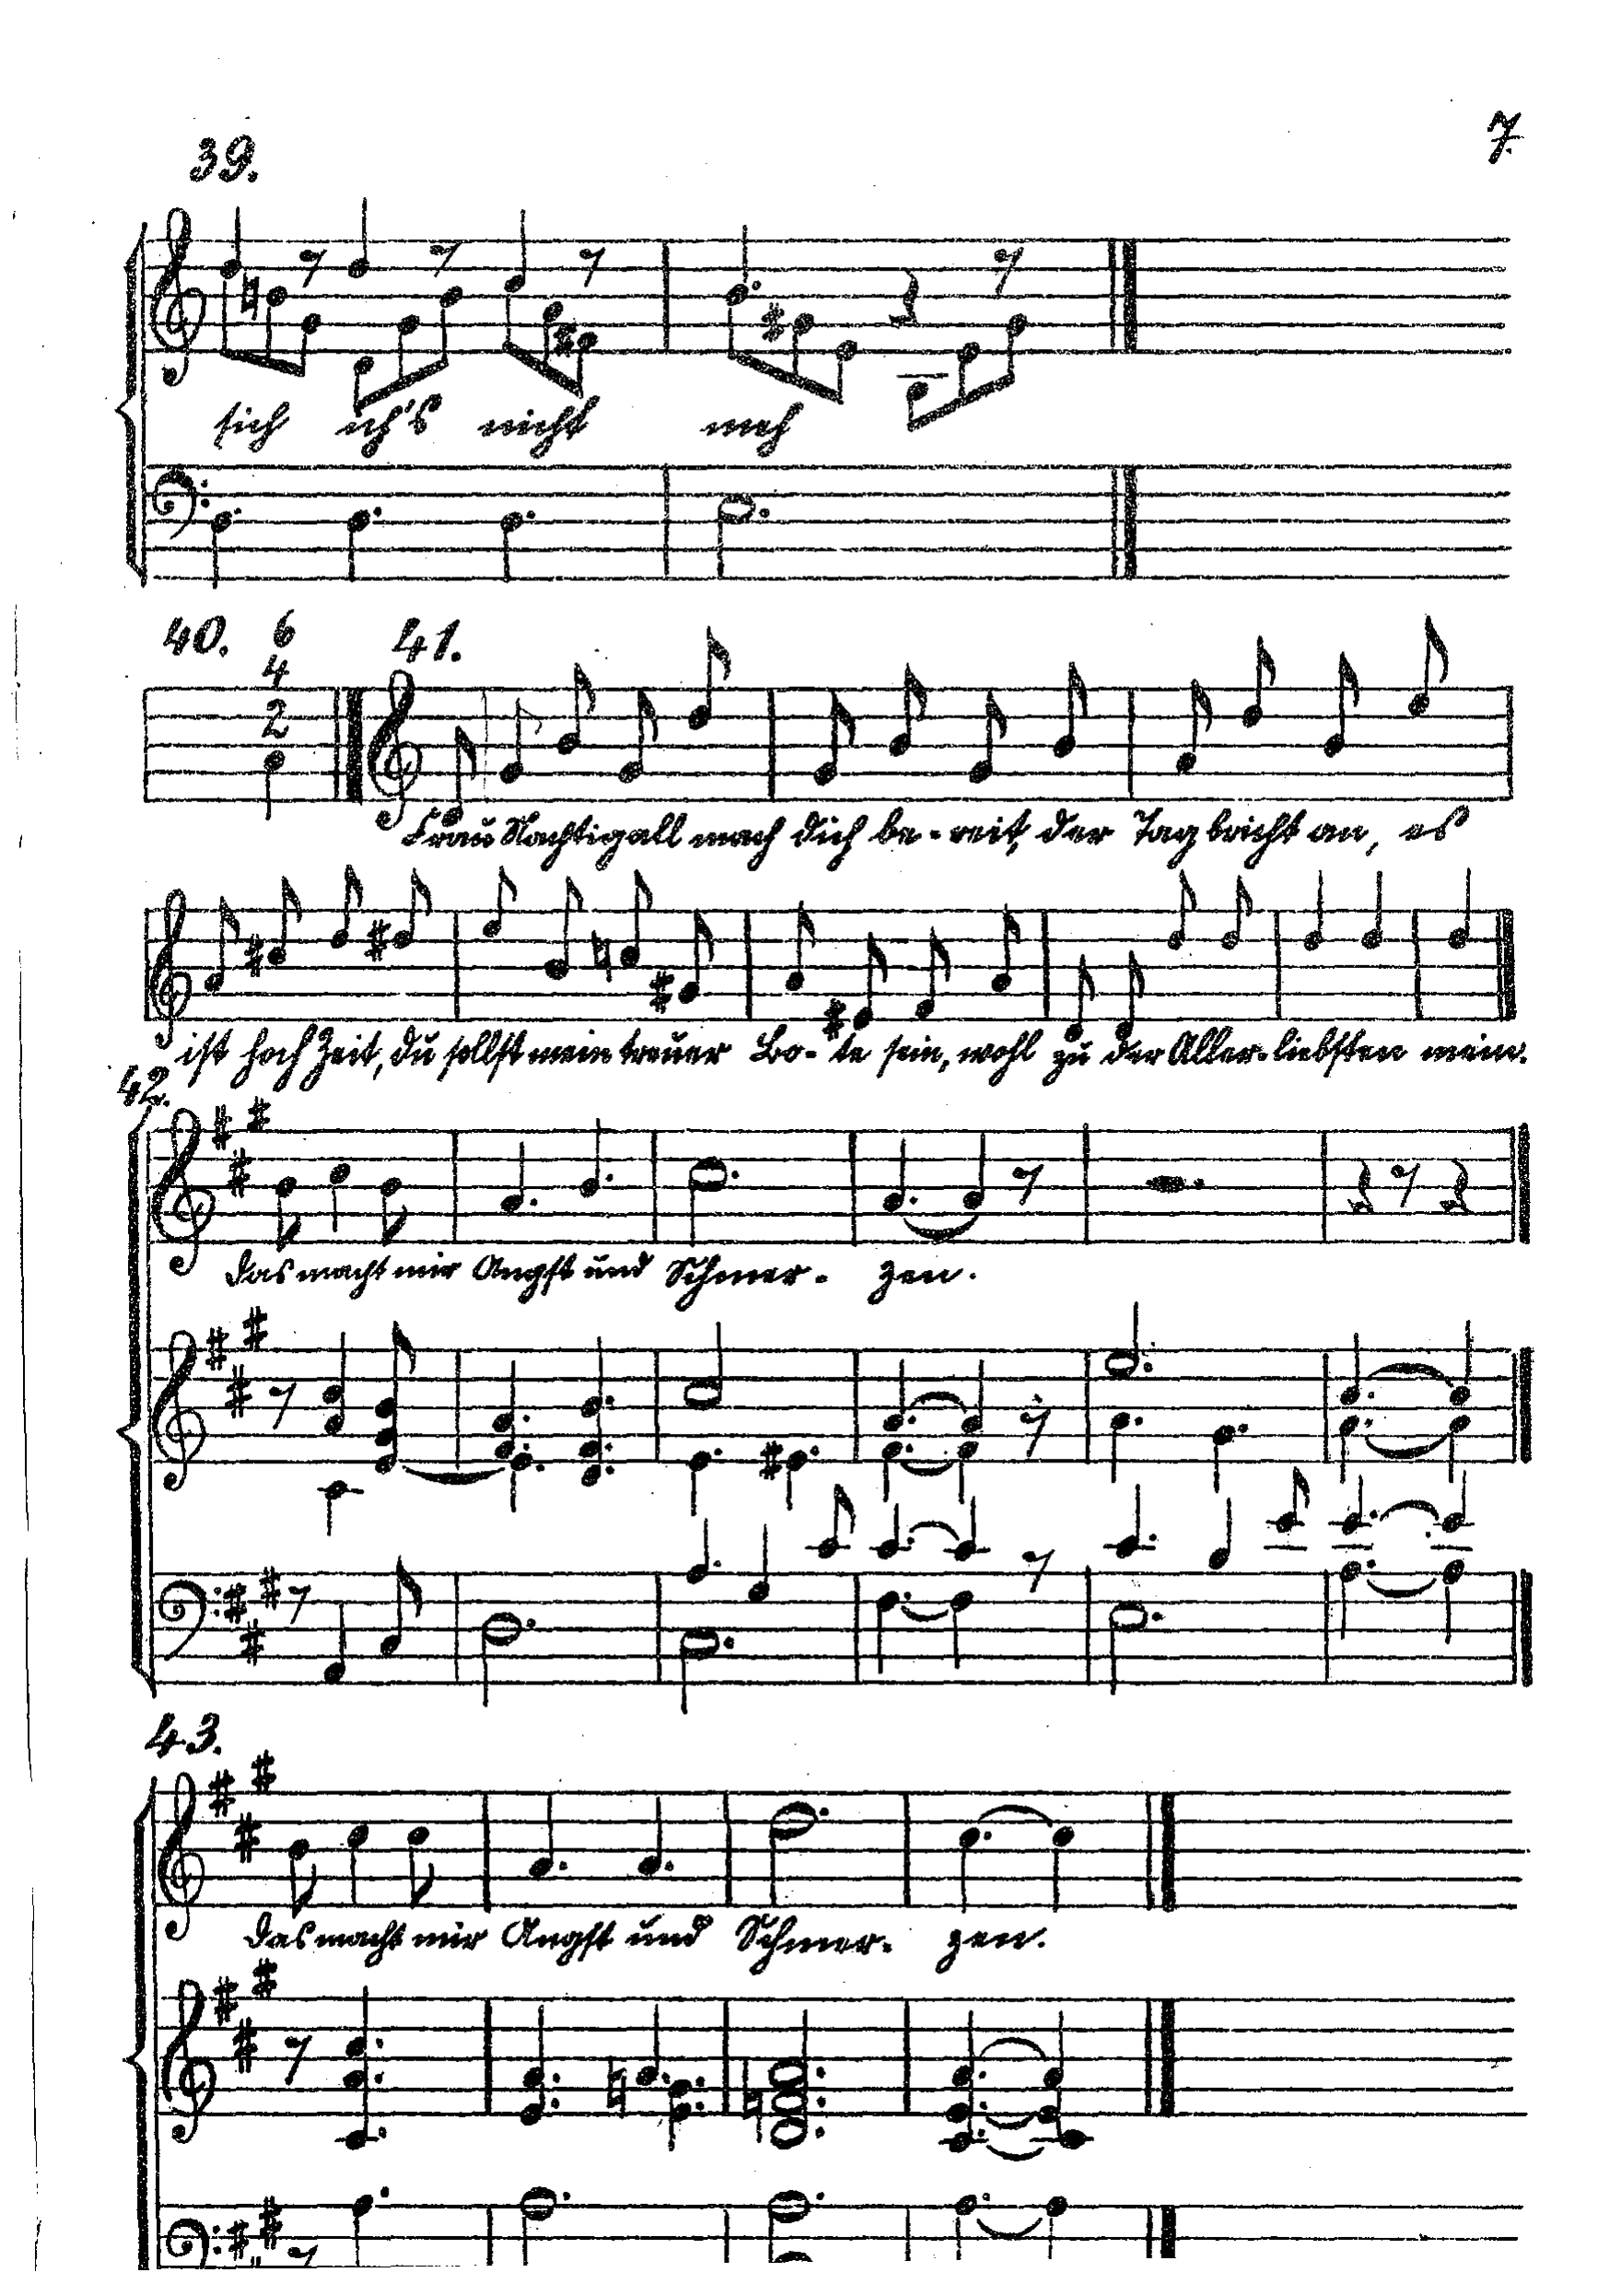 39.
7.
sich ich's nicht meh
40. 6
4
2
41.
Frau Nachtigall mach dich be-reit, der Tag bricht an, es
ist hoch Zeit, du sollst mein treuer Bo-te sein, wohl zu der Aller-liebsten mein.
42.
das macht mir Angst und Schmer- zen.
43.
das macht mir Angst und Schmer- zen.